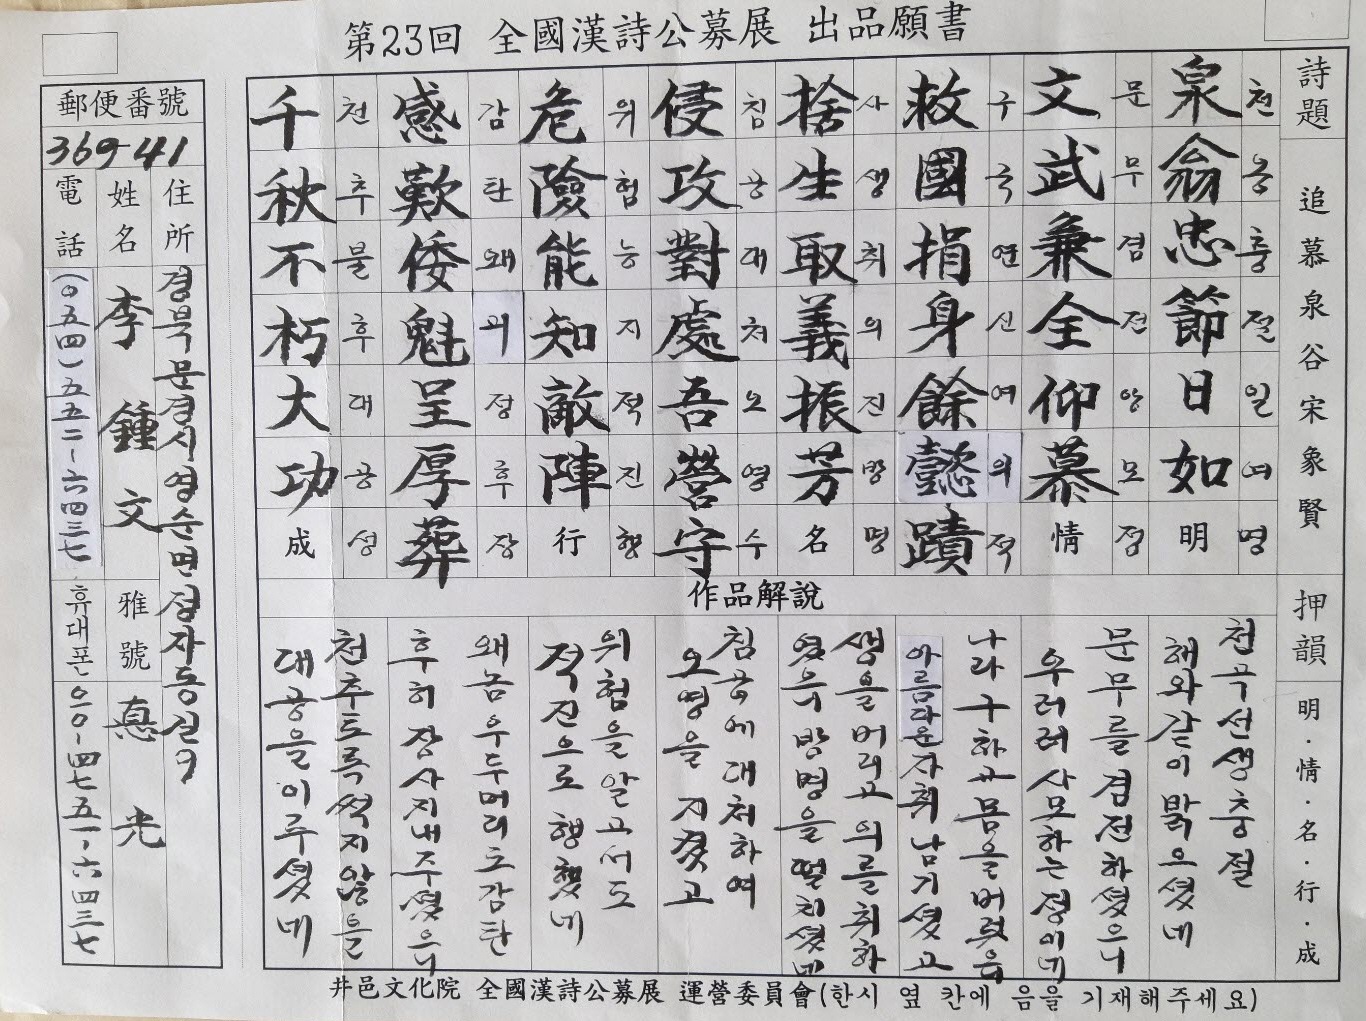 第23回 全國漢詩公募展 出品願書
詩題
追慕泉谷宋象賢
押韻
明·情·名·行·成
泉翁忠節日如明
천옹충절일여명
文武兼全仰慕情
문무겸전앙모정
救國捐身餘懿蹟
구국연신여의적
捨生取義振芳名
사생취의진방명
侵攻對處吾營守
침공대처오영수
危險能知敵陣行
위험능지적진행
感歎倭魁呈厚葬
감탄왜괴정후장
千秋不朽大功成
천추불후대공성
作品解說
천곡선생충절
해와같이 밝으셨네
문무를 겸전하셨으니
우러러 사모하는정이네
나라구하고 몸을버렸음
아름다운 자취 남기셨고
생을버리고 의를취하
였으니 방명을 떨치셨네
침공에대처하여
오영을 지켰고
위험을알고서도
적진으로 행했네
왜놈우두머리도감탄
후히장사지내주셨으니
천추토록 썩지않을
대공을이루셨네
郵便番號
369-41
住所
경북문경시영순면 점자동길 9
姓名
李鍾文
雅號
惪光
電話
(０五四)五五二-六四三七
휴대폰
０一０-四七五一-六四三七
井邑文化院 全國漢詩公募展 運營委員會(한시 옆 칸에 음을 기재해주세요)